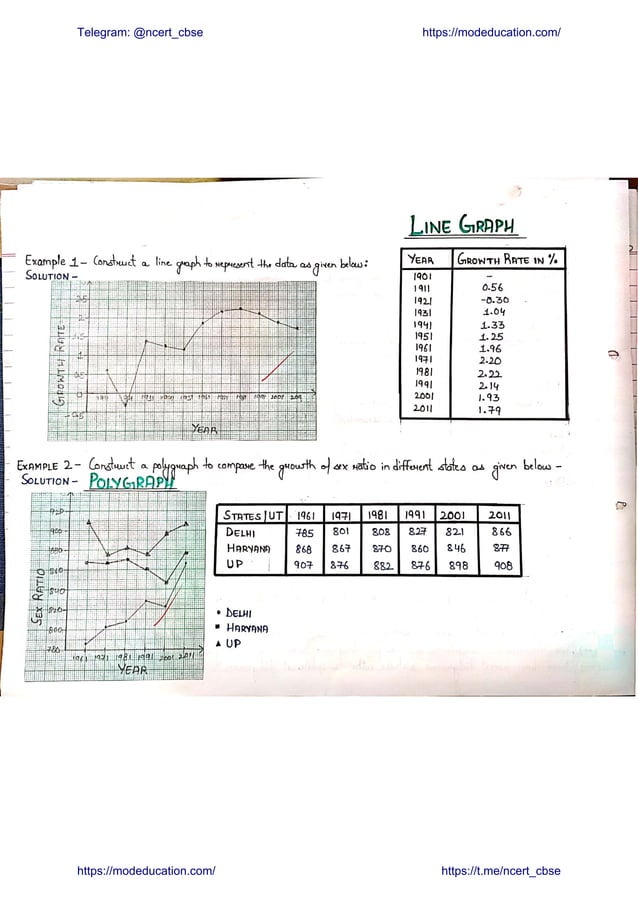 Telegram: @ncert_cbse https://modeducation.com/
LINE GRAPH
Example 1 - Construct a line graph to represent the data as given below:
SOLUTION -
YEAR GROWTH RATE IN %
1901 -
1911 0.56
1921 -0.30
1931 1.04
1941 1.33
1951 1.25
1961 1.96
1971 2.20
1981 2.22
1991 2.14
2001 1.93
2011 1.79
GROWTH RATE
YEAR
EXAMPLE 2 - Construct a polygraph to compare the growth of sex ratio in different states as given below -
SOLUTION - POLYGRAPH
STATES/UT 1961 1971 1981 1991 2001 2011
DELHI 785 801 808 827 821 866
HARYANA 868 867 870 860 846 877
UP 907 876 882 876 898 908
SEX RATIO
920
900
840
820
800
780
1961 1971 1981 1991 2001 2011
YEAR
• DELHI
▪ HARYANA
▲ UP
https://modeducation.com/ https://t.me/ncert_cbse